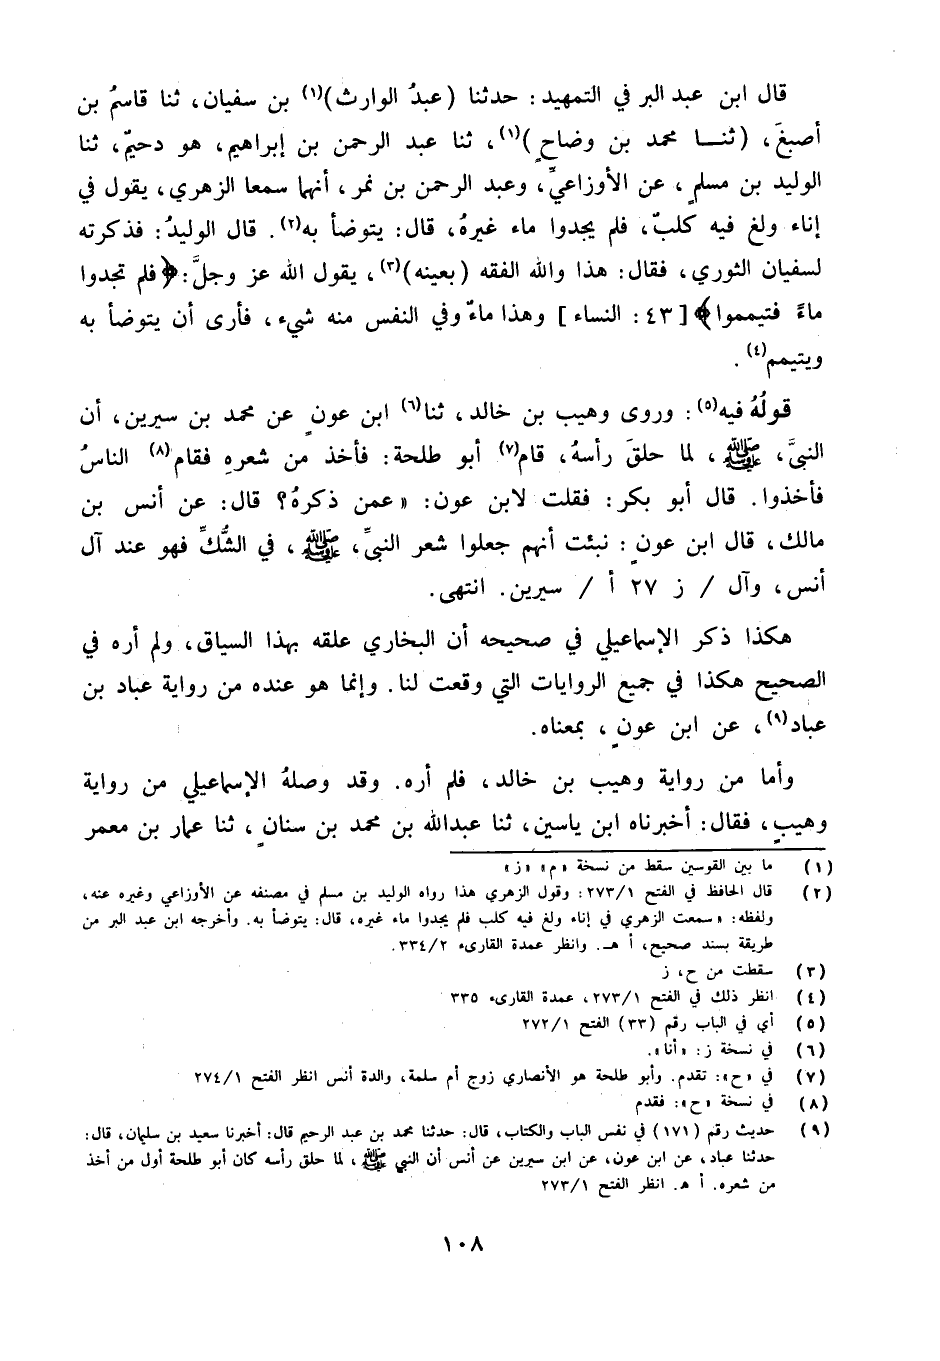 قال ابن عبد البر في التمهيد: حدثنا (عبدُ الوارث)(١) بن سفيان، ثنا قاسمُ بن
أصبغَ، (ثنـــا محمد بن وضاحٍ)(١)، ثنا عبد الرحمن بن إبراهيم، هو دحيمٌ، ثنا
الوليد بن مسلمٍ، عن الأوزاعيِّ، وعبد الرحمن بن نمر، أنهما سمعا الزهري، يقول في
إناء ولغ فيه كلبٌ، فلم يجدوا ماء غيرهُ، قال: يتوضأ به(٢). قال الوليدُ: فذكرته
لسفيان الثوري، فقال: هذا والله الفقه (بعينه)(٣)، يقول الله عز وجلَّ: ﴿فلم تجدوا
ماءً فتيمموا﴾ [٤٣: النساء] وهذا ماءٌ وفي النفس منه شيء، فأرى أن يتوضأ به
ويتيمم(٤).
قولُهُ فيه(٥): وروى وهيب بن خالد، ثنا(٦) ابن عونٍ عن محمد بن سيرين، أن
النبيَّ، ﷺ، لما حلقَ رأسهُ، قام(٧) أبو طلحة: فأخذ من شعرهِ فقام(٨) الناسُ
فأخذوا. قال أبو بكر: فقلت لابن عون: «عمن ذكرهُ؟ قال: عن أنس بن
مالك، قال ابن عونٍ: نبئت أنهم جعلوا شعر النبيِّ، ﷺ، في الشُّكِّ فهو عند آل
أنس، وآل / ز ٢٧ أ / سيرين. انتهى.
هكذا ذكر الإسماعيلي في صحيحه أن البخاري علقه بهذا السياق، ولم أره في
الصحيح هكذا في جميع الروايات التي وقعت لنا. وإنما هو عنده من رواية عباد بن
عباد(٩)، عن ابن عونٍ، بمعناه.
وأما من رواية وهيب بن خالد، فلم أره. وقد وصلهُ الإسماعيلي من رواية
وهيبٍ، فقال: أخبرناه ابن ياسين، ثنا عبدالله بن محمد بن سنانٍ، ثنا عمار بن معمر
(١) ما بين القوسين سقط من نسخة «م» «ز»
(٢) قال الحافظ في الفتح ٢٧٣/١: وقول الزهري هذا رواه الوليد بن مسلم في مصنفه عن الأوزاعي وغيره عنه،
ولفظه: «سمعت الزهري في إناء ولغ فيه كلب فلم يجدوا ماء غيره، قال: يتوضأ به. وأخرجه ابن عبد البر من
طريقة بسند صحيح، أ هـ. وانظر عمدة القارىء ٣٣٤/٢.
(٣) سقطت من ح، ز
(٤) انظر ذلك في الفتح ٢٧٣/١، عمدة القارىء ٣٣٥
(٥) أي في الباب رقم (٣٣) الفتح ٢٧٢/١
(٦) في نسخة ز: «أنا».
(٧) في «ح»: تقدم. وأبو طلحة هو الأنصاري زوج أم سلمة، والدة أنس انظر الفتح ٢٧٤/١
(٨) في نسخة «ح»: فقدم
(٩) حديث رقم (١٧١) في نفس الباب والكتاب، قال: حدثنا محمد بن عبد الرحيم قال: أخبرنا سعيد بن سليمان، قال:
حدثنا عباد، عن ابن عون، عن ابن سيرين عن أنس أن النبي ﷺ، لما حلق رأسه كان أبو طلحة أول من أخذ
من شعره. أ هـ. انظر الفتح ٢٧٣/١
١٠٨